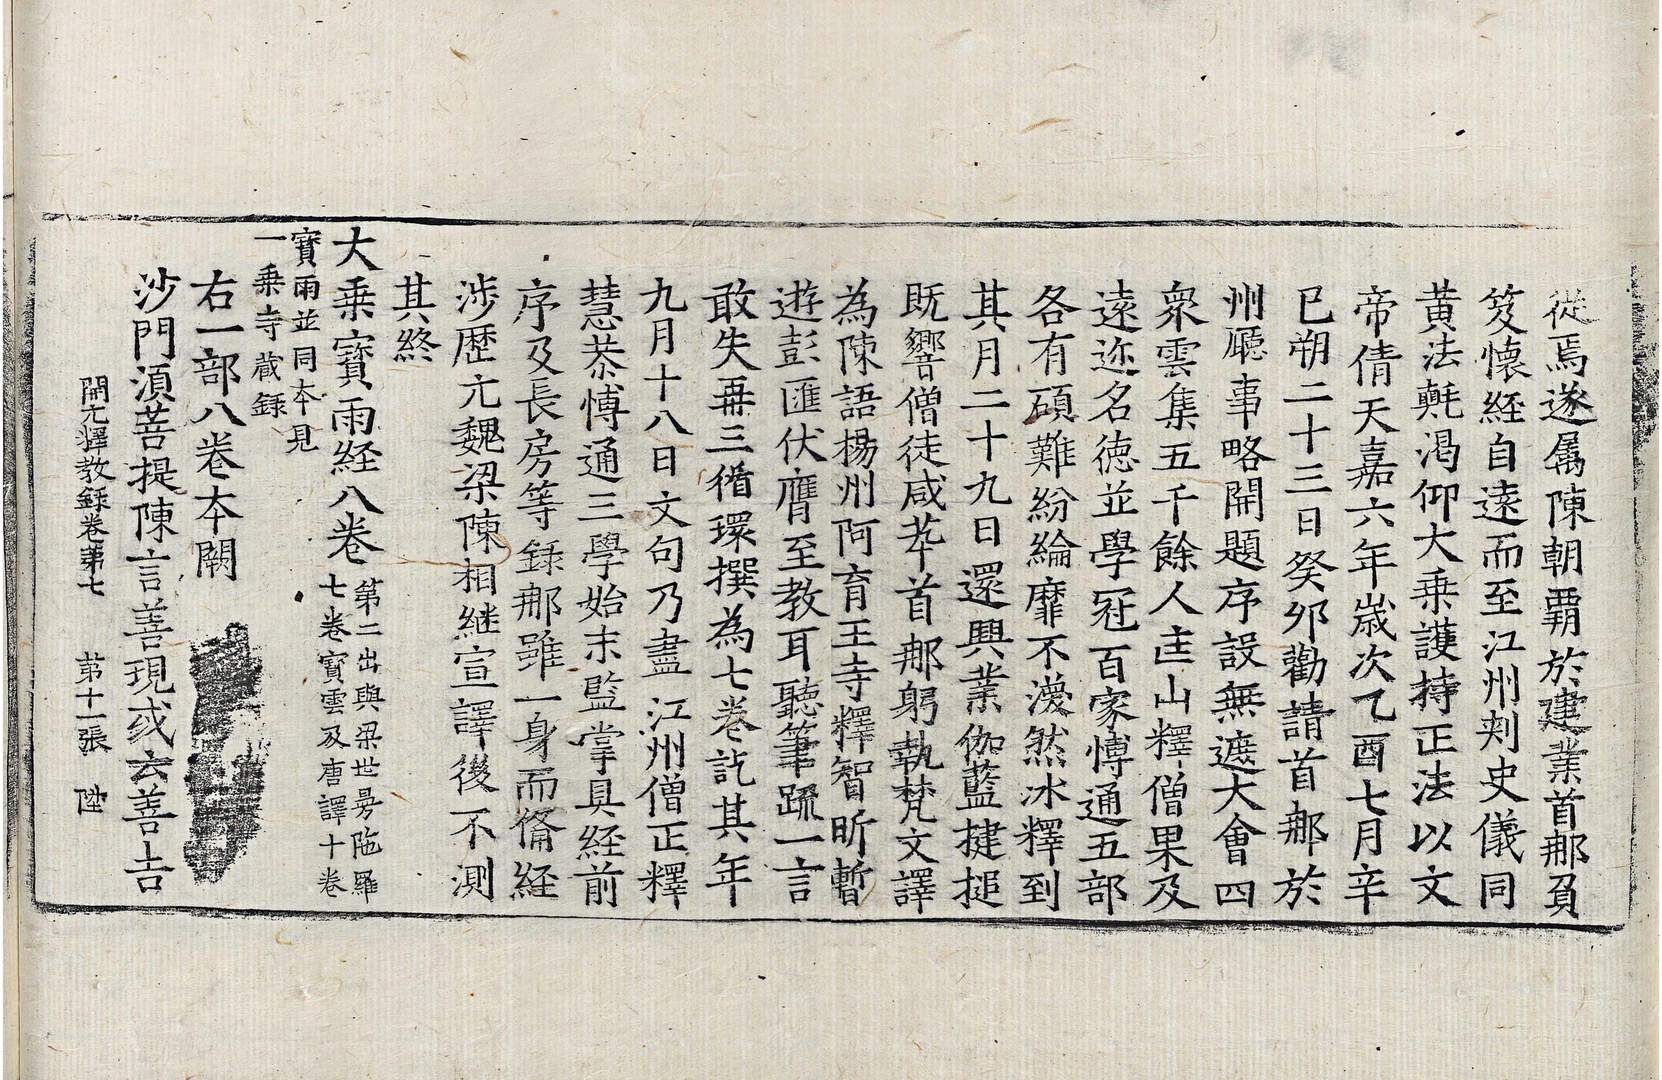 從焉遂属陳朝霸於建業首那負
笈懷經自遠而至江州刾史儀同
黃法𣰰渴仰大乗護持正法以文
帝倩天嘉六年嵗次乙酉七月辛
巳朔二十三日癸夘勸請首那於
州廳事略開題序設無遮大會四
衆雲集五千餘人匡山釋僧果及
遠迩名德並學冠百家愽通五部
各有碩難紛綸靡不渙然冰釋到
其月二十九日還興業伽藍揵搥
既響僧徒咸萃首那躬執梵文譯
為陳語揚州阿育王寺釋智昕暫
遊彭匯伏膺至教耳聽筆䟽一言
敢失再三循環撰為七卷訖其年
九月十八日文句乃盡江州僧正釋
慧恭愽通三學始末監掌具經前
序及長房等錄那雖一身而俻経
涉歷元魏梁陳相継宣譯後不測
其終
大乗寶雨経八卷 第二出與梁世曼陁羅
七卷寶雲及唐譯十卷
寶雨並同本見
一乗寺蔵録
右一部八卷本闕
沙門湏菩提陳言善現或云善吉
開元釋教録卷第七 第十一張 陞